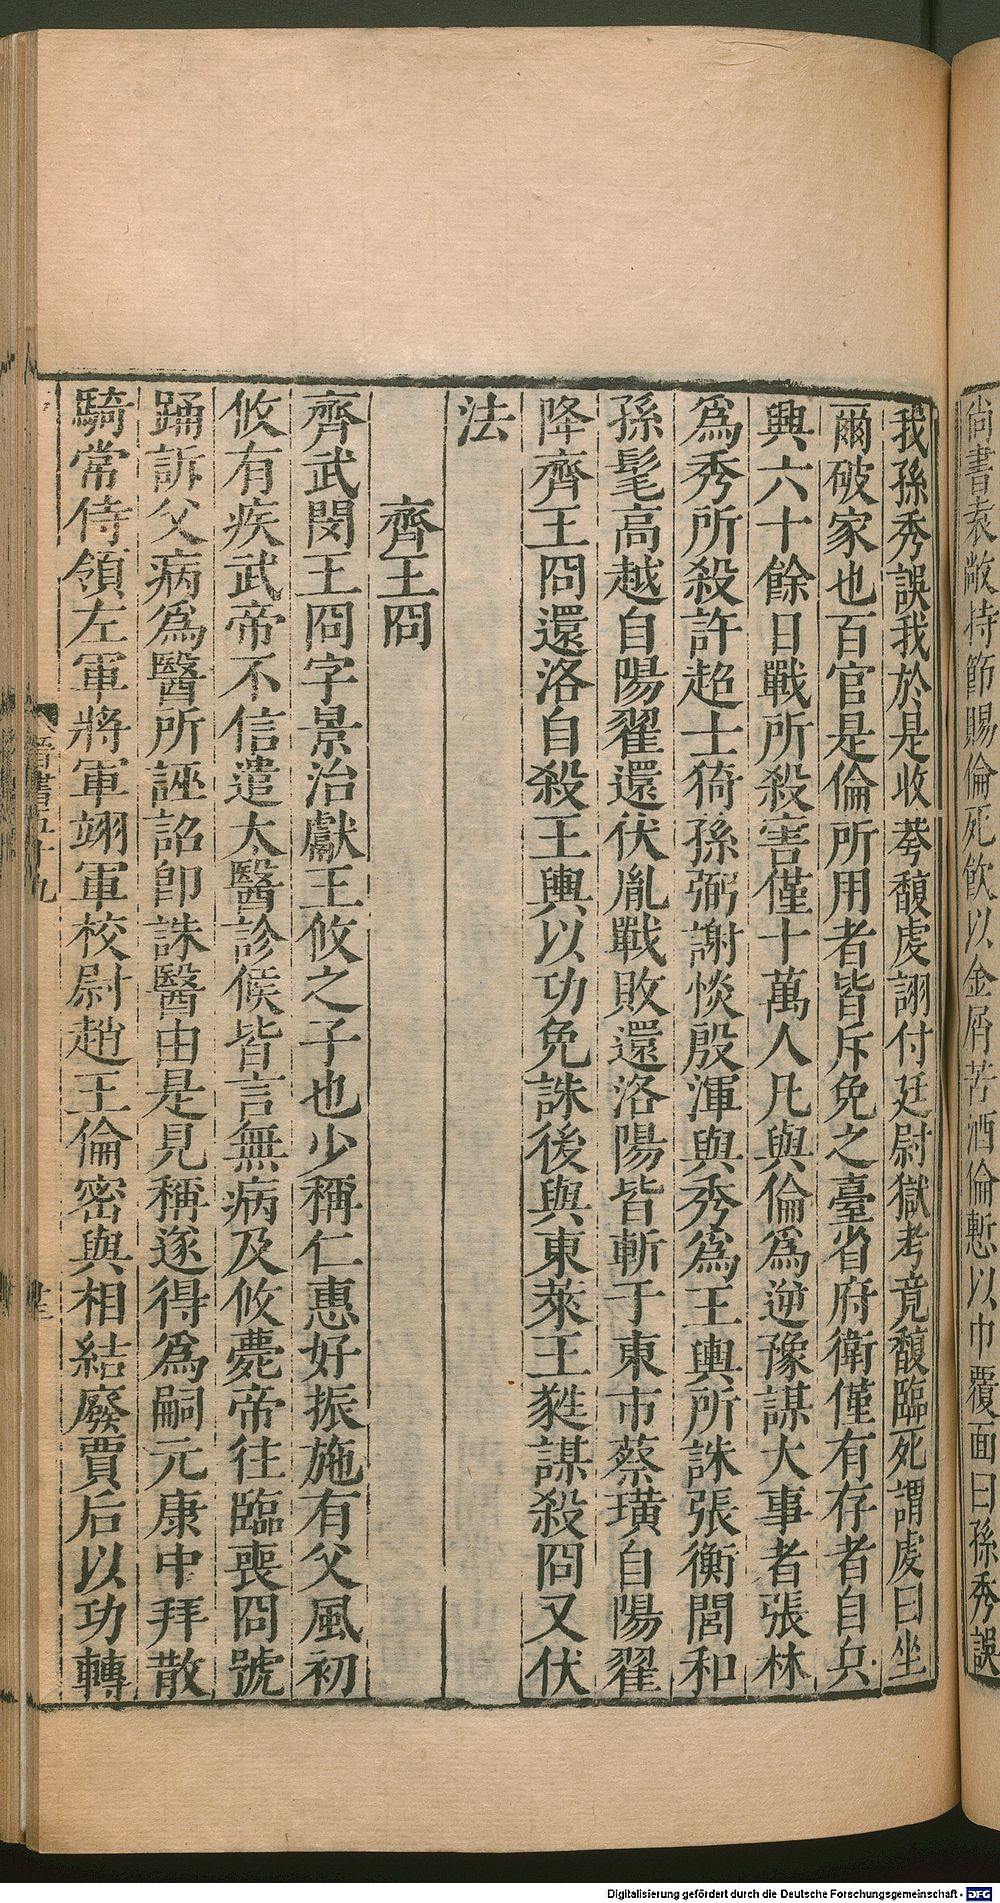 尚書袁敞持節賜倫死飲以金屑苦酒倫慙以巾覆面曰孫秀誤
我孫秀誤我於是收荂馥虔詡付廷尉獄考竟馥臨死謂虔曰坐
爾破家也百官是倫所用者皆斥免之臺省府衛僅有存者自兵
興六十餘日戰所殺害僅十萬人凡與倫爲逆豫謀大事者張林
爲秀所殺許超士猗孫弼謝惔殷渾與秀爲王輿所誅張衡閭和
孫髦高越自陽翟還伏胤戰敗還洛陽皆斬于東市蔡璜自陽翟
降齊王冏還洛自殺王輿以功免誅後與東萊王蕤謀殺冏又伏
法
齊王冏
齊武閔王冏字景治獻王攸之子也少稱仁惠好振施有父風初
攸有疾武帝不信遣太醫診候皆言無病及攸薨帝往臨喪冏號
踊訴父病爲醫所誣詔卽誅醫由是見稱遂得爲嗣元康中拜散
騎常侍領左軍將軍翊軍校尉趙王倫密與相結廢賈后以功轉
晉書五十九
Digitalisierung gefördert durch die Deutsche Forschungsgemeinschaft - DFG